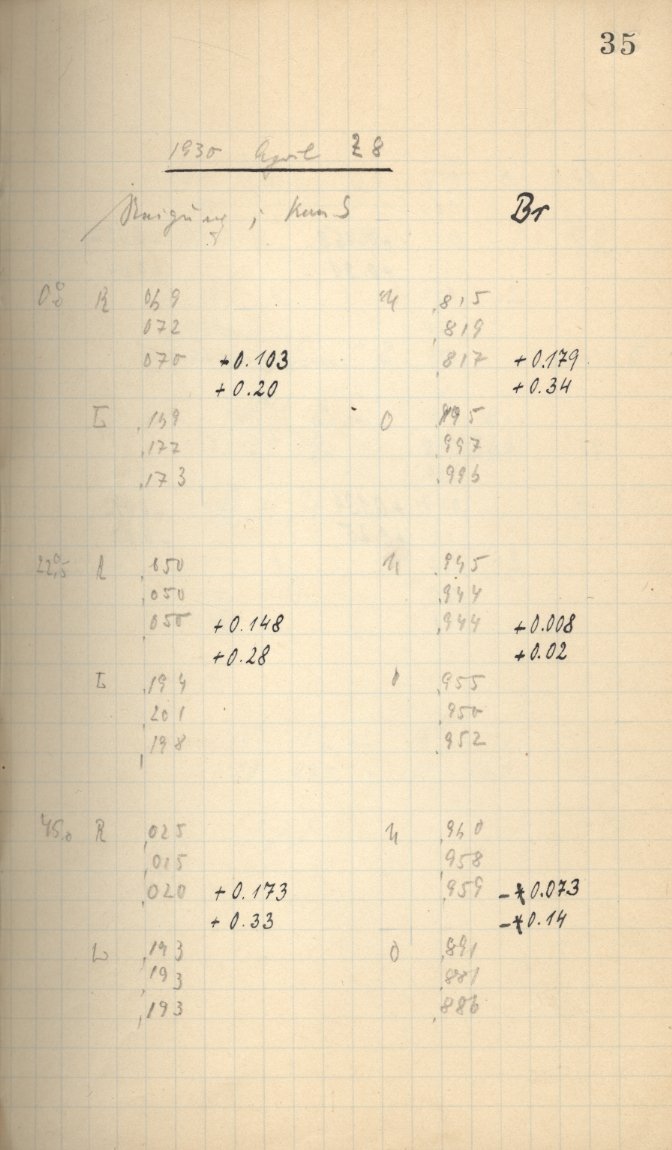 35
1930 April 28
Neigung ; Br
0°.0 R 069 U ,815
072 819
070 +0.103 817 +0.179
+0.20 +0.34
L ,169 O 995
,177 ,997
,173 ,996
22°.5 R ,050 U ,945
,050 ,944
050 +0.148 ,944 +0.008
+0.28 +0.02
L ,194 O ,955
201 ,950
198 ,952
45.0 R ,025 U ,960
,015 958
,020 +0.173 959 -0.073
+0.33 -0.14
L ,193 O ,891
,193 ,881
,193 ,886